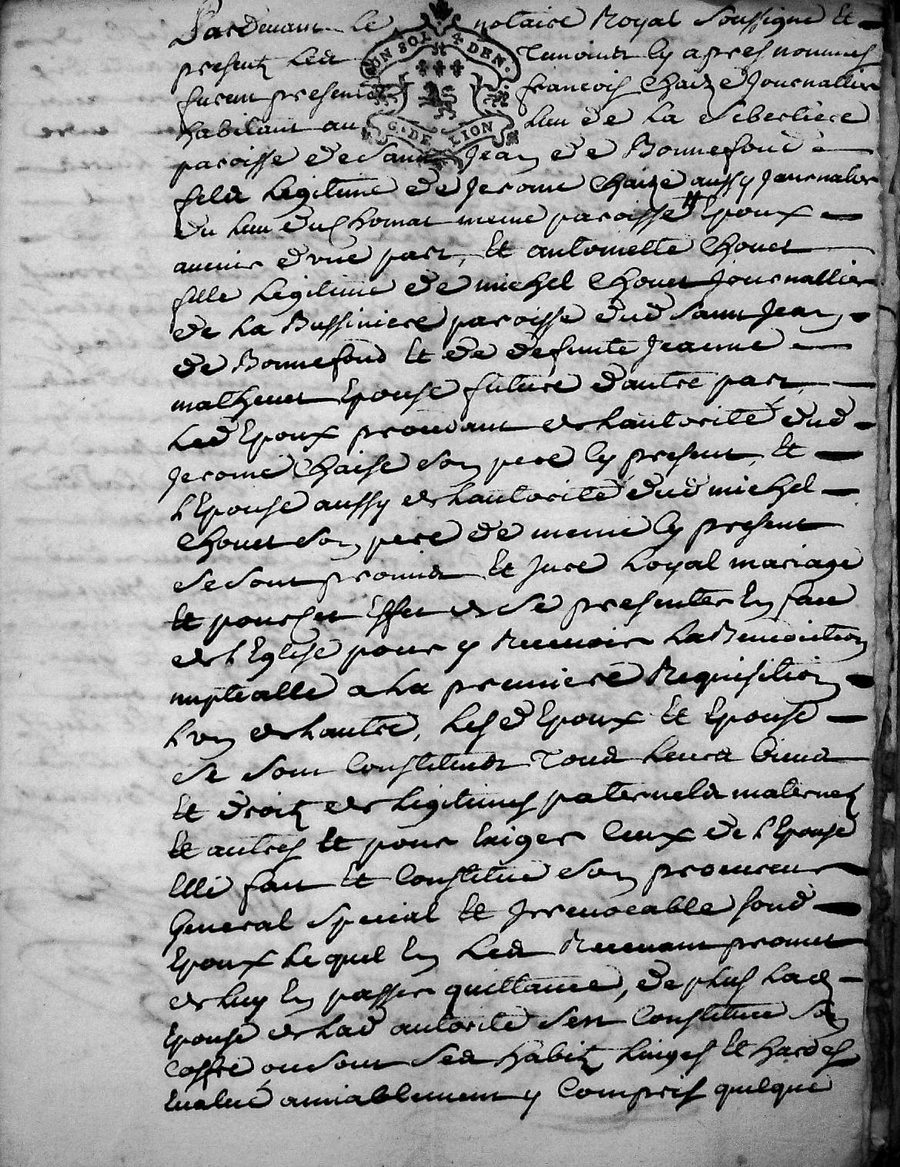 Pardevant le notaire Royal Soussigné et
UN SOL 4 DEN.
G. DE LION
presents les Temoins cy apres nommes
furent presents francois Chaize Journallier
habitant au lieu de la Seberliere
paroisse de Saint Jean de Bonnefond
fils legitime de Jerome Chaize aussy Journalier
du lieu du Chomat meme paroisse Epoux
avenir d'une part, Et antoinette Chouet
fille legitime de michel Chouet Journallier
de la Bussiniere paroisse dud Saint Jean
de Bonnefond Et de defunte Jeanne
mathevet Epouse future d'autre part,
led Epoux procedant de lautorité dud
Jerome Chaise son pere cy present, Et
l'Epouse aussy de lautorité dud michel
Chouet son pere de meme cy present
se sont promis Et Juré loyal mariage
Et pour cet Effet de se presenter En face
de l'Eglise pour y Recevoir la Benediction
nuptialle a la premiere Requisition
l'un de lautre, lesd Epoux Et Epouse
se sont Constitués Tous leurs biens
Et droits de legitimes paternels maternels
Et autres Et pour Exiger Ceux de l'Epouse
Elle fait Et Constitue son procureur
General Special Et Irrevocable sond
Epoux lequel En les Recevant promet
de luy En passer quittance, de plus lad
Epouse de lad autorité sest Constitué son
Coffre ou sont ses habits linges Et hardes
Evalué amiablement y Compris quelque